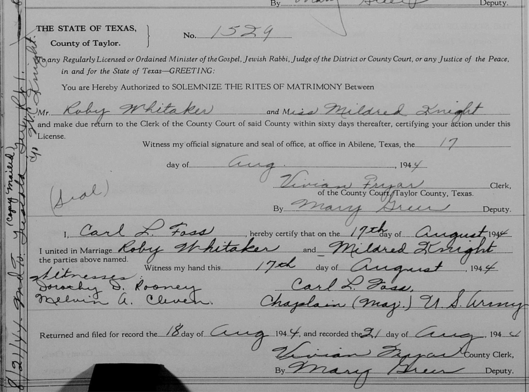 By Mary Greer Deputy.
THE STATE OF TEXAS,
County of Taylor.
No. 1529
To any Regularly Licensed or Ordained Minister of the Gospel, Jewish Rabbi, Judge of the District or County Court, or any Justice of the Peace,
in and for the State of Texas—GREETING:
You are Hereby Authorized to SOLEMNIZE THE RITES OF MATRIMONY Between
Mr Roby Whitaker and Miss Mildred Knight
and make due return to the Clerk of the County Court of said County within sixty days thereafter, certifying your action under this
License.
Witness my official signature and seal of office, at office in Abilene, Texas, the 17
day of Aug. , 1944
(Seal)
Vivian Fryar Clerk,
of the County Court, Taylor County, Texas.
By Mary Greer Deputy.
I, Carl L. Foss , hereby certify that on the 17th day of August 1944
I united in Marriage Roby Whitaker and Mildred Knight
the parties above named.
Witness my hand this 17th day of August , 1944
Witnesses:
Dorothy S. Rooney
Melvin A. Cleven.
Carl L. Foss,
Chaplain (Maj.) U.S. Army
Returned and filed for record the 18 day of Aug 1944, and recorded the 21 day of Aug , 1944
Vivian Fryar County Clerk,
By Mary Greer Deputy.
(copy mailed)
8/21/44
c/o Knight